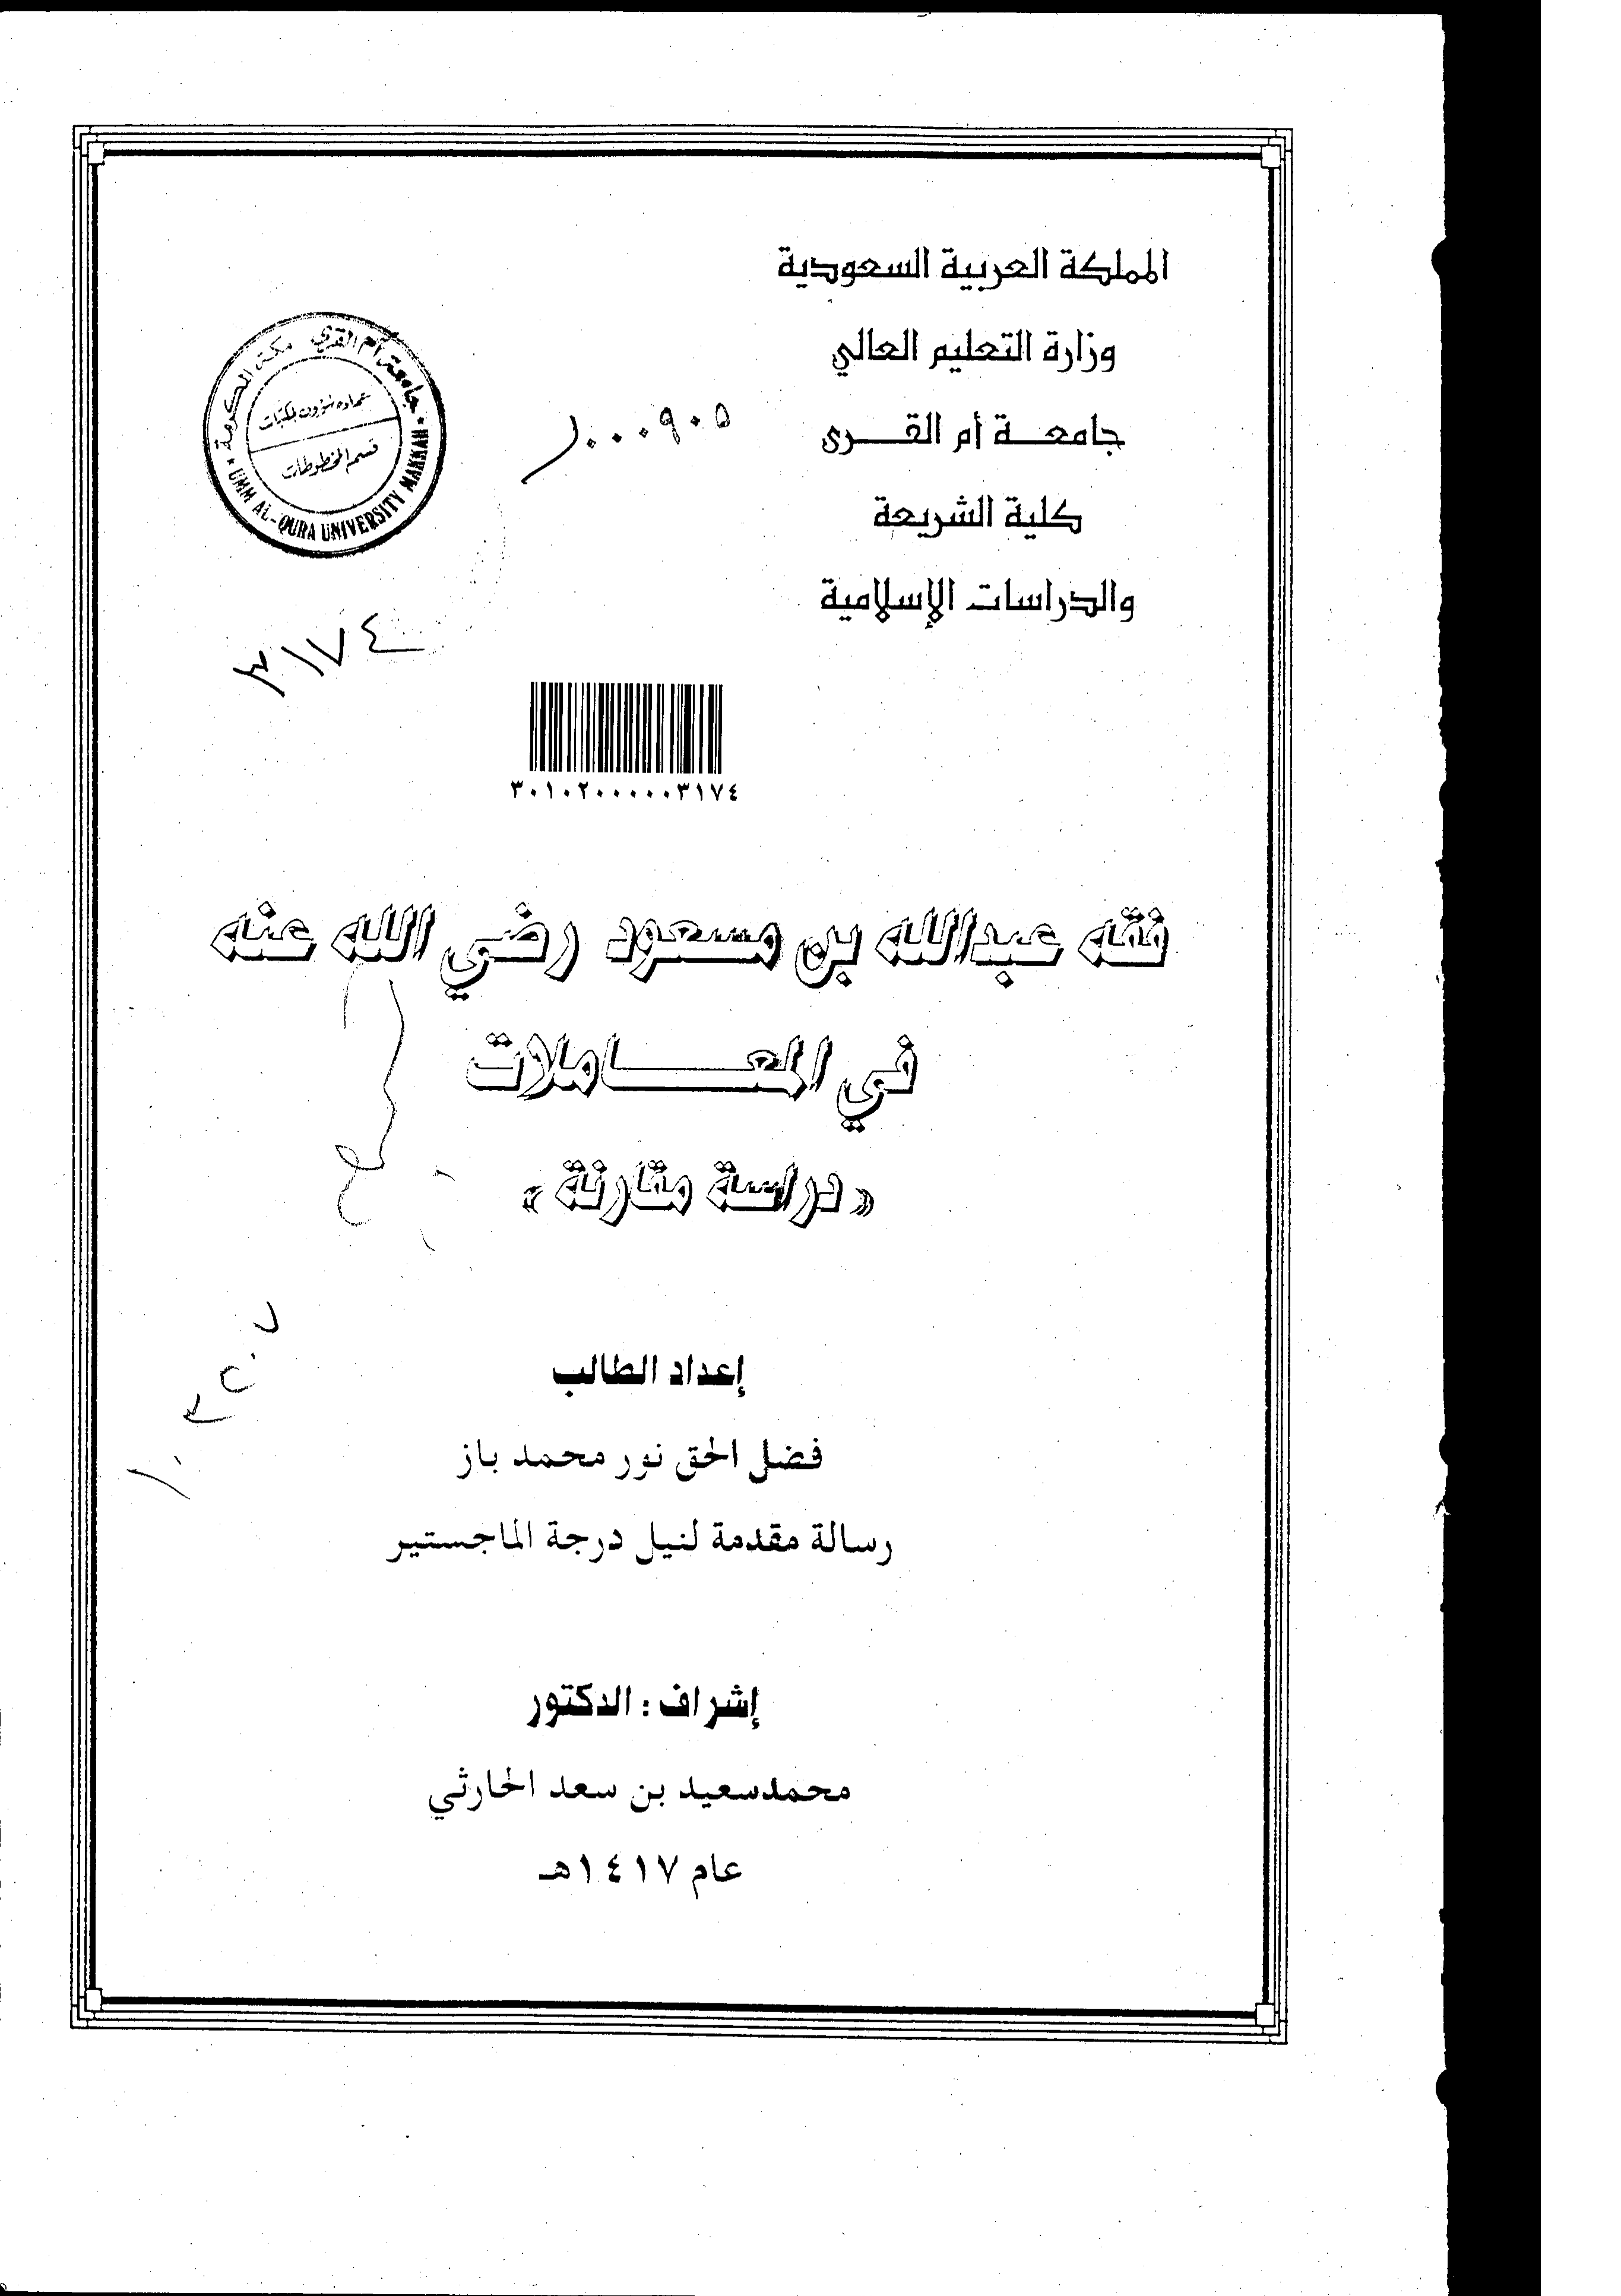 المملكة العربية السعودية
وزارة التعليم العالي
جامعــة أم القــــرى
كلية الشريعة
والدراسات الإسلامية
جامعة أم القرى مكة المكرمة
عمادة شؤون المكتبات
قسم المخطوطات
* UMM AL-QURA UNIVERSITY MAKKAH *
٠٠٠٩٠٥
٣١٧٤
٣٠١٠٢٠٠٠٠٠٠٣١٧٤
فقه عبدالله بن مسعود رضي الله عنه
في المعــــــاملات
« دراسة مقارنة »
إعداد الطالب
فضل الحق نور محمد باز
رسالة مقدمة لنيل درجة الماجستير
إشراف : الدكتور
محمدسعيد بن سعد الحارثي
عام ١٤١٧هـ